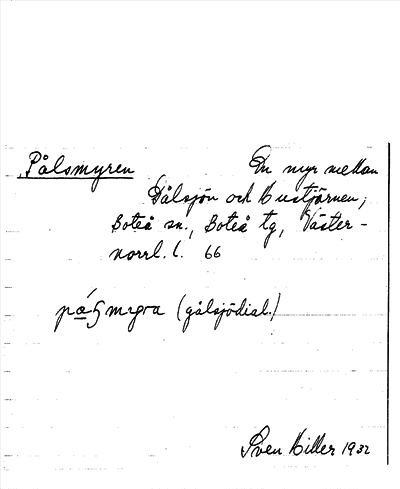 Pålsmyren En myr mellan
Dålsjön och Hustjärnen;
Boteå sn., Boteå tg, Väster-
norrl. l. 66
(gålsjödial.)
Sven Hiller 1932